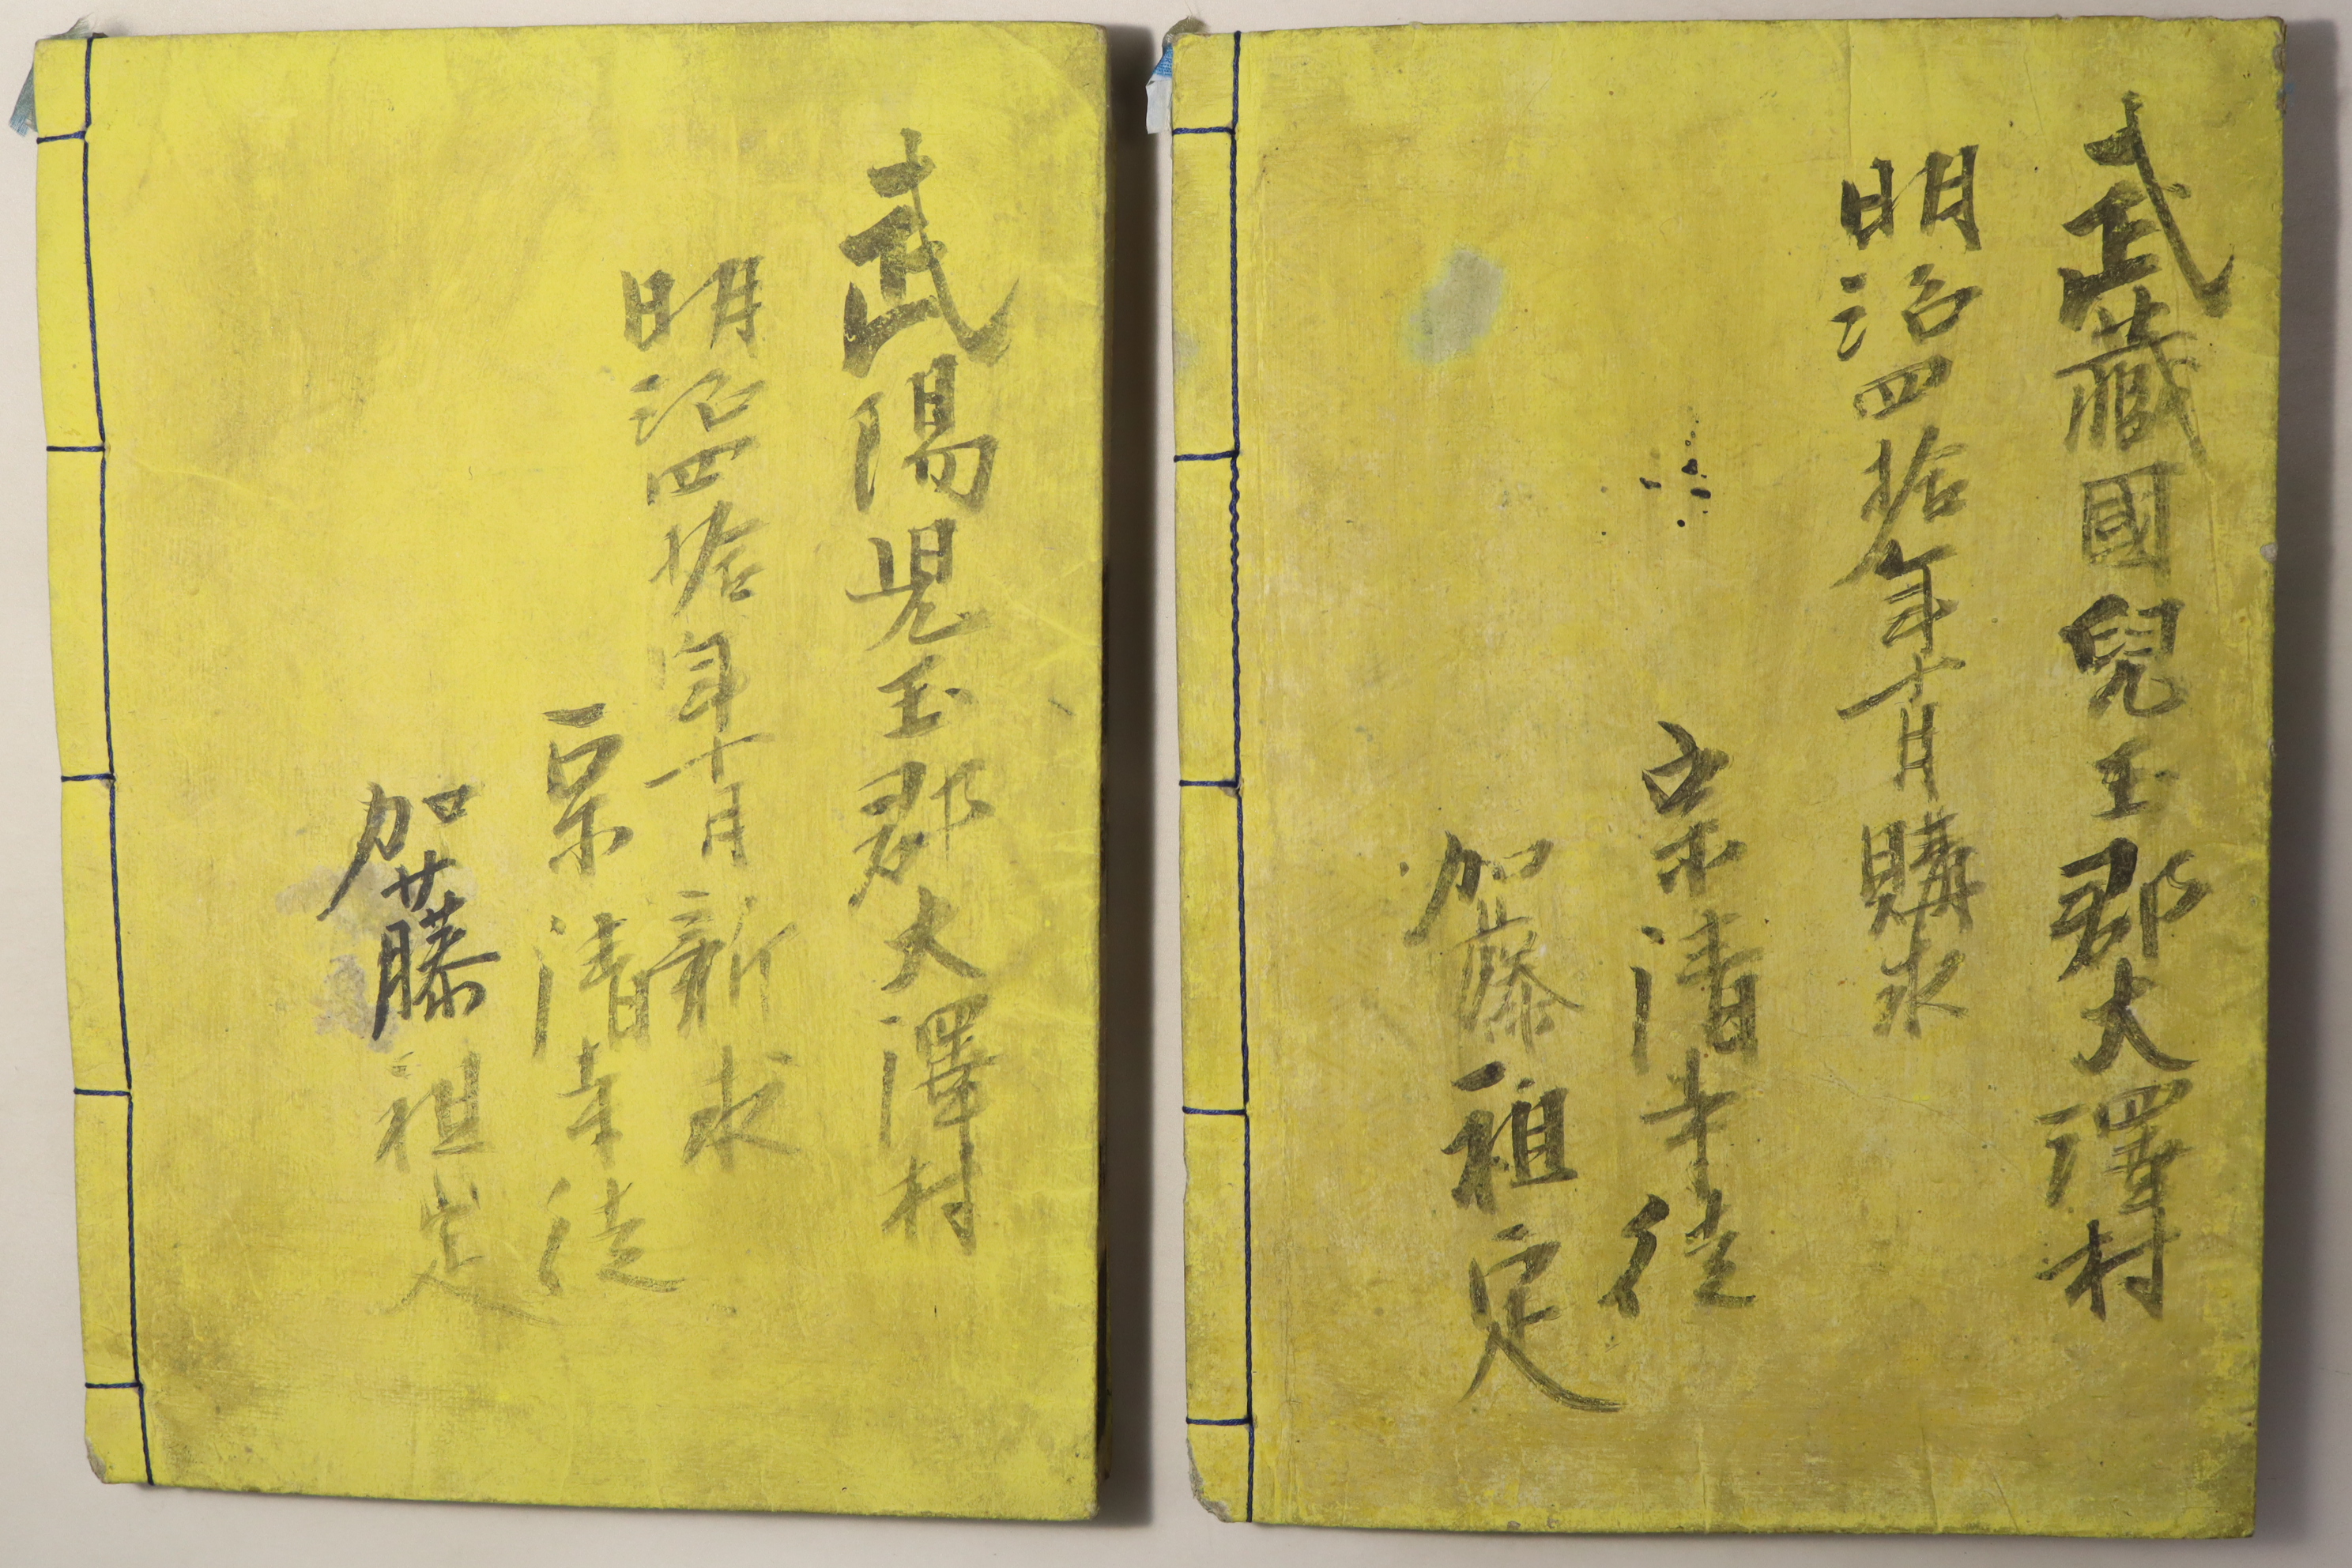 武藏國兒玉郡大澤村
明治四拾年十月購求
宗清寺徒
加藤祖定
武陽児玉郡大澤村
明治四拾年十月新求
宗清寺徒
加藤祖定